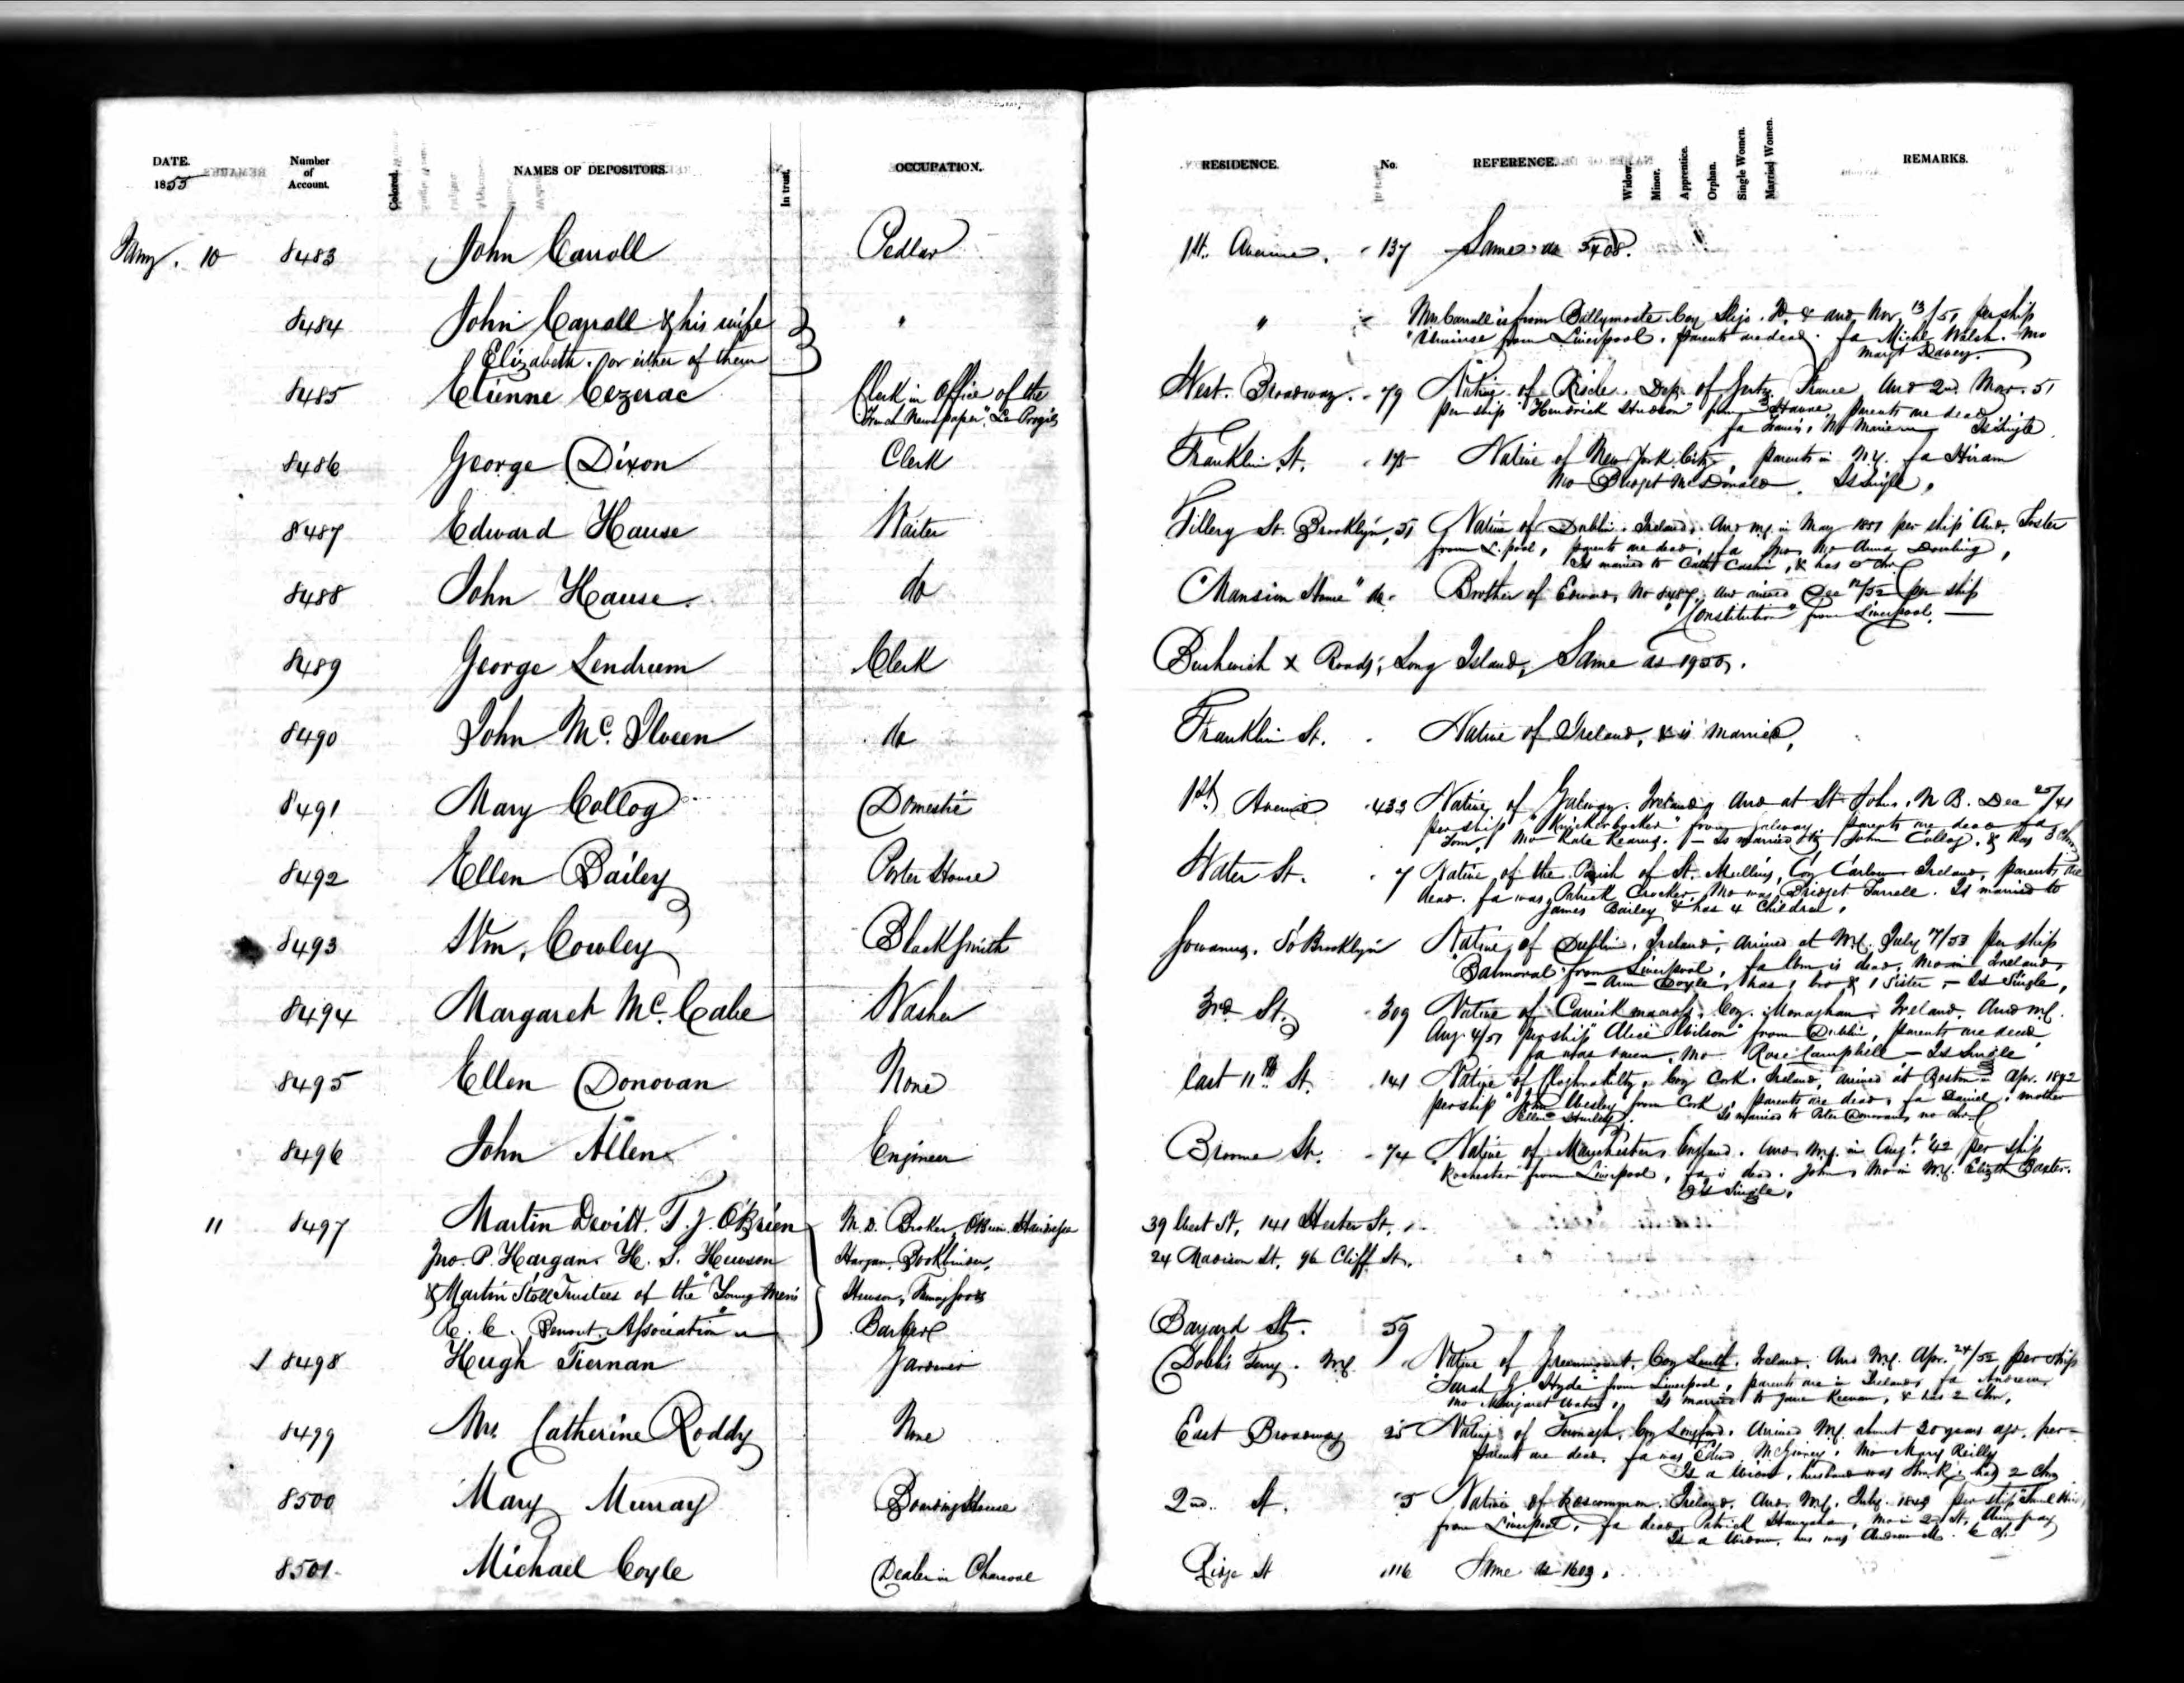 DATE. Number of Account. Colored. NAMES OF DEPOSITORS. In trust. OCCUPATION. RESIDENCE. No. REFERENCE. Widow. Minor. Apprentice. Orphan. Single Women. Married Women. REMARKS.
1855
Jany. 10 8483 John Carroll Pedlar 1st. Avenue. 137 Same as 5408.
8484 John Carroll & his wife " " Mrs Carroll is from Ballymote Coy Sligo. Id. & arrd Nov 13/51 per ship
Elizabeth. or either of them from Liverpool. parents are dead. fa Michl Walsh. Mo
Margt Davey.
8485 Etienne Cezerac Clerk in Office of the West. Broadway. 79 Native of Riscle. Dep. of Gers, France Arrd 2nd Mar. 51
French Newspaper, "Le Progrés per ship "Hendrick Hudson" from Havre, parents are dead
fa Francis, Mo Marie Is Single
8486 George Dixon Clerk Franklin St. 175 Native of New York City, parents in N.Y. fa Hiram
Mo Bridget McDonald. Is single,
8487 Edward Hause Waiter Tillery St. Brooklyn, 51 Native of Dublin. Ireland. Arrd N.Y. in May 1851 per ship And. Foster
from L.pool, parents are dead, fa Jno, Mo Anna Dowling,
Is married to Cath Cashin, & has chr.
8488 John Hause. do "Mansion House" do. Brother of Edward, No 8487, and arrived Dec 12/52 per ship
"Constitution" from Liverpool.
8489 George Lendrum Clerk Bushwich X Roads, Long Island, Same as 1950,.
8490 John Mc. Ilveen do Franklin St. Native of Ireland, & is married,
8491 Mary Collog Domestic 1st Avenue 433 Native of Galway. Ireland, Arrd at St Johns. N B. Dec 25/41
per ship "Knickerbocker" from Galway parents are dead fa
Tom, Mo Kate Kearns. - Is married to John Collog, & has 3 Chn
8492 Ellen Bailey Porter House Water St. 7 Native of the Parish of St. Mullins, Coy Carlow Ireland, parents are
dead. fa was Patrick Crocker, Mo was Bridget Farrell. Is married to
James Bailey & has 4 Children,
8493 Wm. Cowley Blacksmith Gowanus. So Brooklyn Native of Dublin, Ireland, arrived at N.Y. July 7/53 per ship
"Balmoral" from Liverpool, fa Wm is dead, Mo in Ireland,
- Ann Coyle, has 1 bro & 1 Sister, - Is Single,
8494 Margaret Mc. Cabe Washer 3rd St. 309 Native of Carrickmacross, Coy. Monaghan, Ireland. Arrd N.Y.
Aug 4/51 per ship "Alice Wilson" from Dublin, parents are dead
fa was Owen, Mo Rose Campbell - Is Single
8495 Ellen Donovan None East 11th St. 141 Native of Cloghnakilty, Coy Cork. Ireland, arrived at Boston Apr. 1842
per ship "John Wesley from Cork, parents are dead, fa Daniel, mother
Ellen Hurley. Is married to Peter Donovan, no chr.
8496 John Allen Engineer Broome St. 74 Native of Manchester, England. Arrd N.Y. in Augt '42 per ship
"Rochester" from Liverpool, fa is dead. John, Mo in N.Y. Elizth Baxter.
Is Single,
11 8497 Martin Devitt. T. J. O'Brien M. D. Broker, O'Brien 39 West St, 141 Hester St.
Jno. P. Hargan. H. S. Hewson Hargan, Bookbinder, 24 Madison St. 96 Cliff St.
& Martin Stoll Trustees of the "Young Men's Hewson,
R. C. Benevt. Association" Barber Bayard St. 59
8498 Hugh Tiernan Gardener Dobb's Ferry. N.Y. Native of Greenmount, Coy Louth. Ireland. Arrd N.Y. Apr. 24/52 per ship
"Sarah G Hyde" from Liverpool, parents are in Ireland, fa Andrew,
Mo Margaret Waters, Is married to Jane Keenan, & has 2 Chn,
8499 Mrs Catherine Roddy None East Broadway 25 Native of Coy Longford. Arrived N.Y. about 20 years ago, per
parents are dead, fa was McGinney, Mo Mary Reilly
Is a Widow, husband was has 2 Chn
8500 Mary Murray Boarding House 2nd. St. 5 Native of Roscommon. Ireland. Arrd N.Y. July 1849 per ship
from Liverpool, fa dead, Patrick Mo in 2nd St,
Is a Widow, hus was Andrew M.
8501 Michael Coyle Dealer in Charcoal Ridge St 116 Same as 1609,